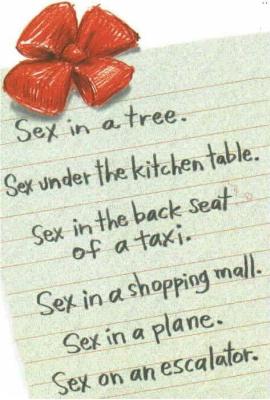 Sex in a tree.
Sex under the kitchen table.
Sex in the back seat
of a taxi.
Sex in a shopping mall.
Sex in a plane.
Sex on an escalator.